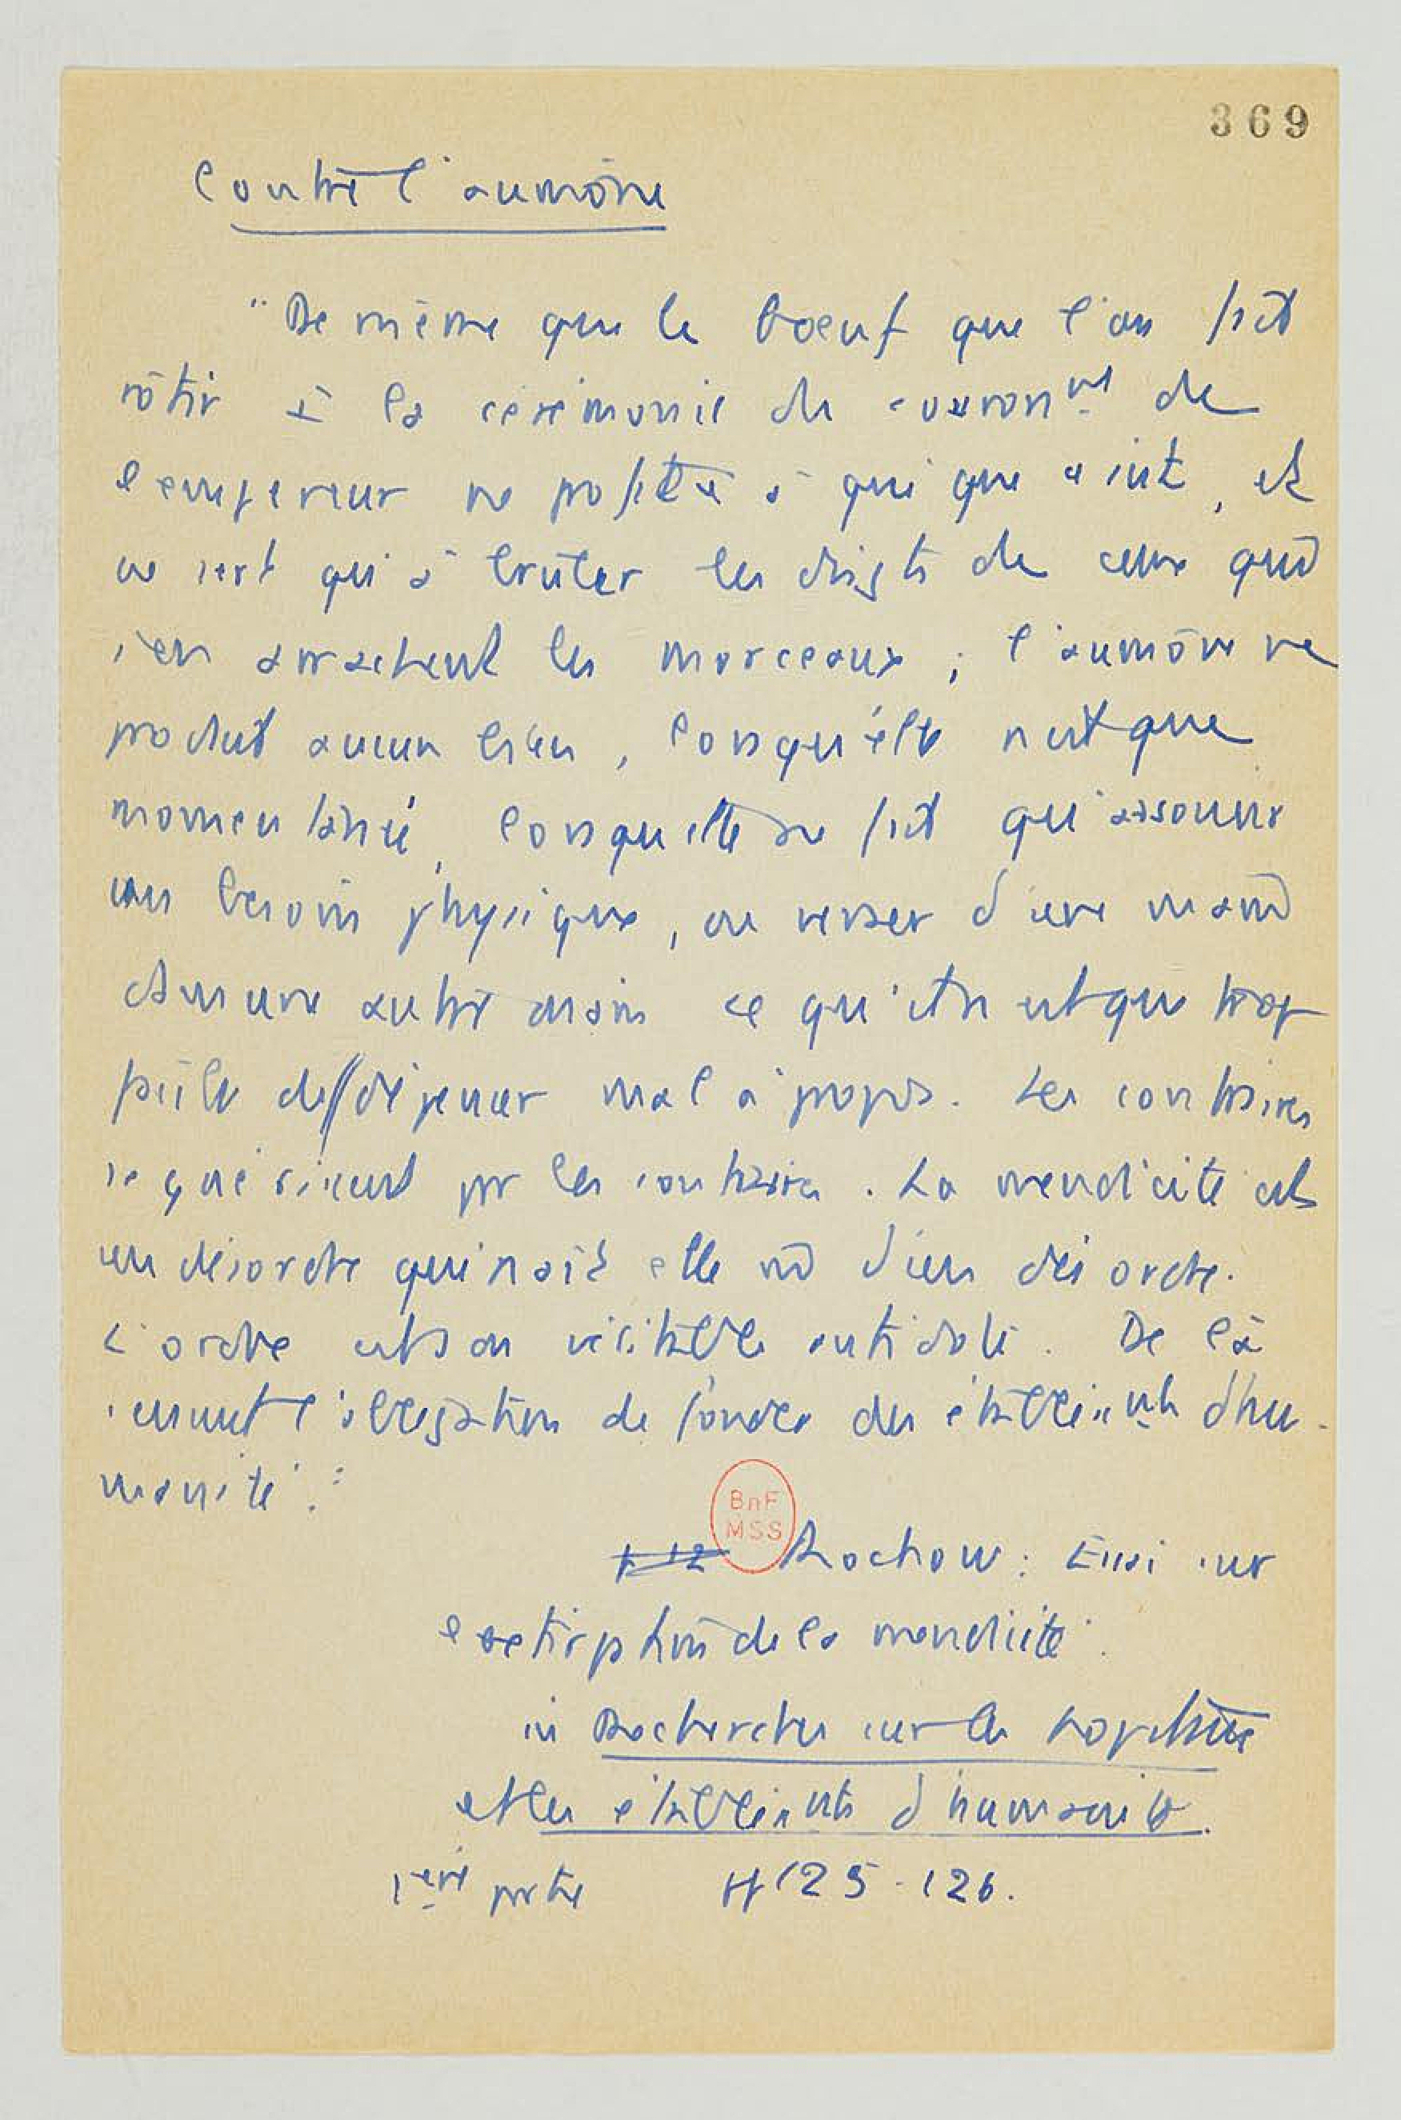 369
Contre l'aumône
"De même que le boeuf que l'on fait
rôtir à la cérémonie du couronnt de
l'empereur ne profite à qui que ce soit, et
ne sert qu'à brûler les doigts de ceux qui
s'en arrachent les morceaux ; l'aumône ne
produit aucun bien, lorsqu'elle n'est que
momentanée, lorsqu'elle ne fait qu'assouvir
un besoin physique, ou verser d'une main
dans une autre main ce qu'il n'est que trop
facile de dépenser mal à propos. Les contraires
se guérissent par les contraires. La mendicité est
un désordre qui naît elle m d'un désordre.
L'ordre est son véritable antidote. De là
s'ensuit l'obligation de fonder des établissnts d'hu-
manité."
p 12 Rochow : Essai sur
extirpation de la mendicité.
in Recherches sur les hôpitaux
et les établissnts d'humanité.
1ère partie pp 125-126.
BnF
MSS